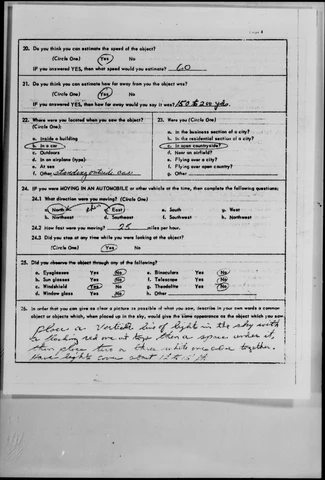 20. Do you think you can estimate the speed of the object?
(Circle One) Yes No
IF you answered YES, then what speed would you estimate? 60
21. Do you think you can estimate how far away from you the object was?
(Circle One) Yes No
IF you answered YES, then how far away would you say it was? 150 to 200 yds.
22. Where were you located when you saw the object?
(Circle One):
a. Inside a building
b. In a car
c. Outdoors
d. In an airplane (type)
e. At sea
f. Other standing outside car
23. Were you (Circle One)
a. In the business section of a city?
b. In the residential section of a city?
c. In open countryside?
d. Near an airfield?
e. Flying over a city?
f. Flying over open country?
g. Other
24. IF you were MOVING IN AN AUTOMOBILE or other vehicle at the time, then complete the following questions:
24.1 What direction were you moving? (Circle One)
a. North c. East e. South g. West
b. Northeast d. Southeast f. Southwest h. Northwest
24.2 How fast were you moving? 25 miles per hour.
24.3 Did you stop at any time while you were looking at the object?
(Circle One) Yes No
25. Did you observe the object through any of the following?
a. Eyeglasses Yes No e. Binoculars Yes No
b. Sun glasses Yes No f. Telescope Yes No
c. Windshield Yes No g. Theodolite Yes No
d. Window glass Yes No h. Other
26. In order that you can give as clear a picture as possible of what you saw, describe in your own words a common
object or objects which, when placed up in the sky, would give the same appearance as the object which you saw.
place a vertical line of lights in the sky with
a flashing red one at top then a space under it,
then place two or three white ones close together.
Have lights cover about 12 to 15 ft.